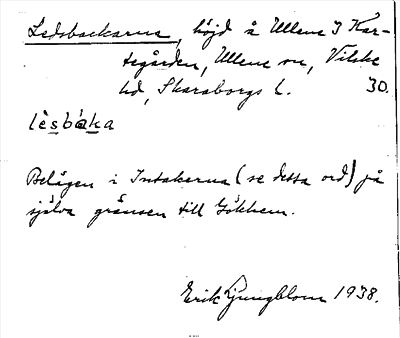 Ledsbackarna, höjd å Ullene 3 Kar-
tegården, Ullene sn, Vilske
hd, Skaraborgs l. 30.
lèsbáka
Belägen i Intakerna (se detta ord) på
själva gränsen till Gökhem.
Erik Ljungblom 1938.